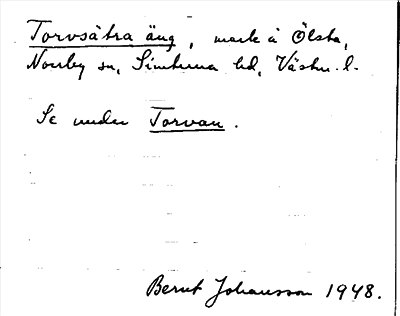 Torvsätra äng, mark å Ölsta,
Norrby sn, Simtuna hd, Västm. l.
Se under Torvan.
Bernt Johansson 1948.